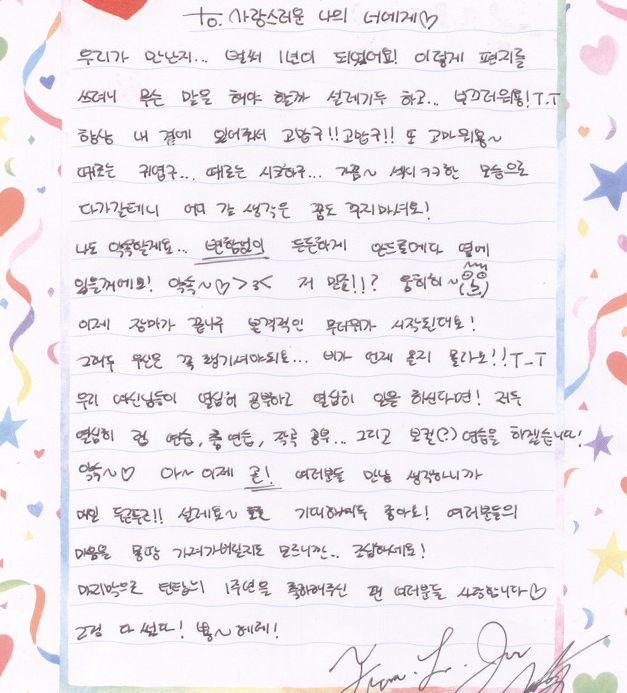 To. 사랑스러운 나의 너에게♡
우리가 만난지... 벌써 1년이 되었어요! 이렇게 편지를
쓰려니 무슨 말을 해야 할까 설레기두 하고... 부끄러워용!T.T
항상 내 곁에 있어줘서 고맙구!!고맙구!! 또 고마워용~
때로는 귀엽구... 때로는 시크하구... 가끔~ 섹시ㅋㅋ한 모습으로
다가갈테니 어디 갈 생각은 꿈도 꾸지마셔요!
나도 약속할게요.. 변함없이 든든하게 안드로메다 옆에
있을거에요! 약속~♡>3< 저 믿죠!!? 웅히히~
이제 장마가 끝나구 본격적인 무더위가 시작된대요!
그래두 우산은 꼭 챙기셔야되요... 비가 언제 올지 몰라요!!T_T
우리 여신님들이 열심히 공부하고 열심히 일을 하신다면! 저두
열심히 랩 연습, 춤 연습, 작곡 공부... 그리고 보컬(?)연습을 하겠습니다!
약속~♡ 아~ 이제 곧! 여러분들 만날 생각하니까
매일 두근두리!! 설레요~ 기대해여두 좋아요! 여러분들의
마음을 몽땅 가져가버릴지도 모르니깐.. 조심하세요!
마지막으로 틴탑의 1주년을 축하해주신 팬 여러분들 사랑합니다♡
그럼 다 썼다! 뿅~헤헤!
From. L.Joe